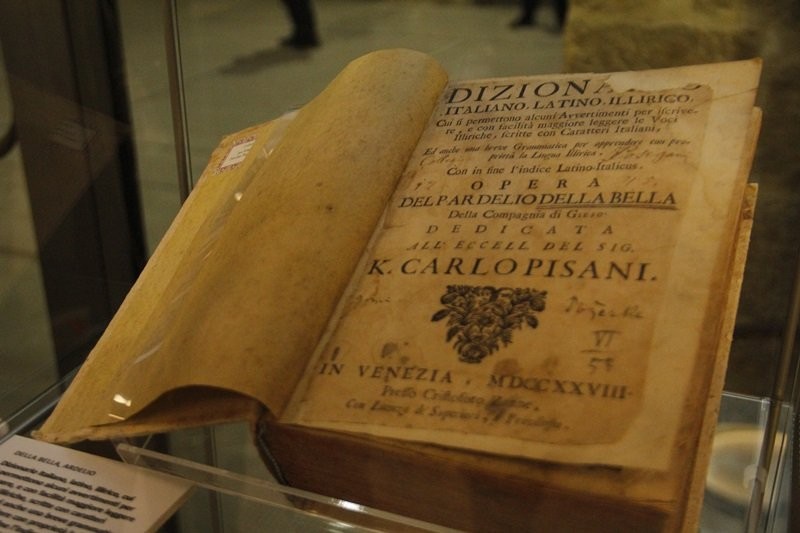 DIZIONA
ITALIANO, LATINO, ILLIRICO,
Cui si permettono alcuni Avvertimenti per iscrive-
re, e con facilità maggiore leggere le Voci
Illiriche, scritte con Caratteri Italiani,
Ed anche una breve Grammatica per apprendere con pro-
prietà la Lingua Illirica.
Con in fine l'indice Latino-Italicus.
OPERA
DEL P. ARDELIO DELLA BELLA
Della Compagnia di GIESU.
DEDICATA
ALL' ECCELL. DEL SIG.
K. CARLO PISANI.
VI
58
IN VENEZIA, MDCCXXVIII.
Presso Cristoforo
Con Licenza de' Superiori, e Privilegio.
DELLA BELLA, ARDELIO
Dizionario italiano, latino, illirico, cui
si permettono alcuni avvertimenti per
iscrivere, e con facilità maggiore leggere